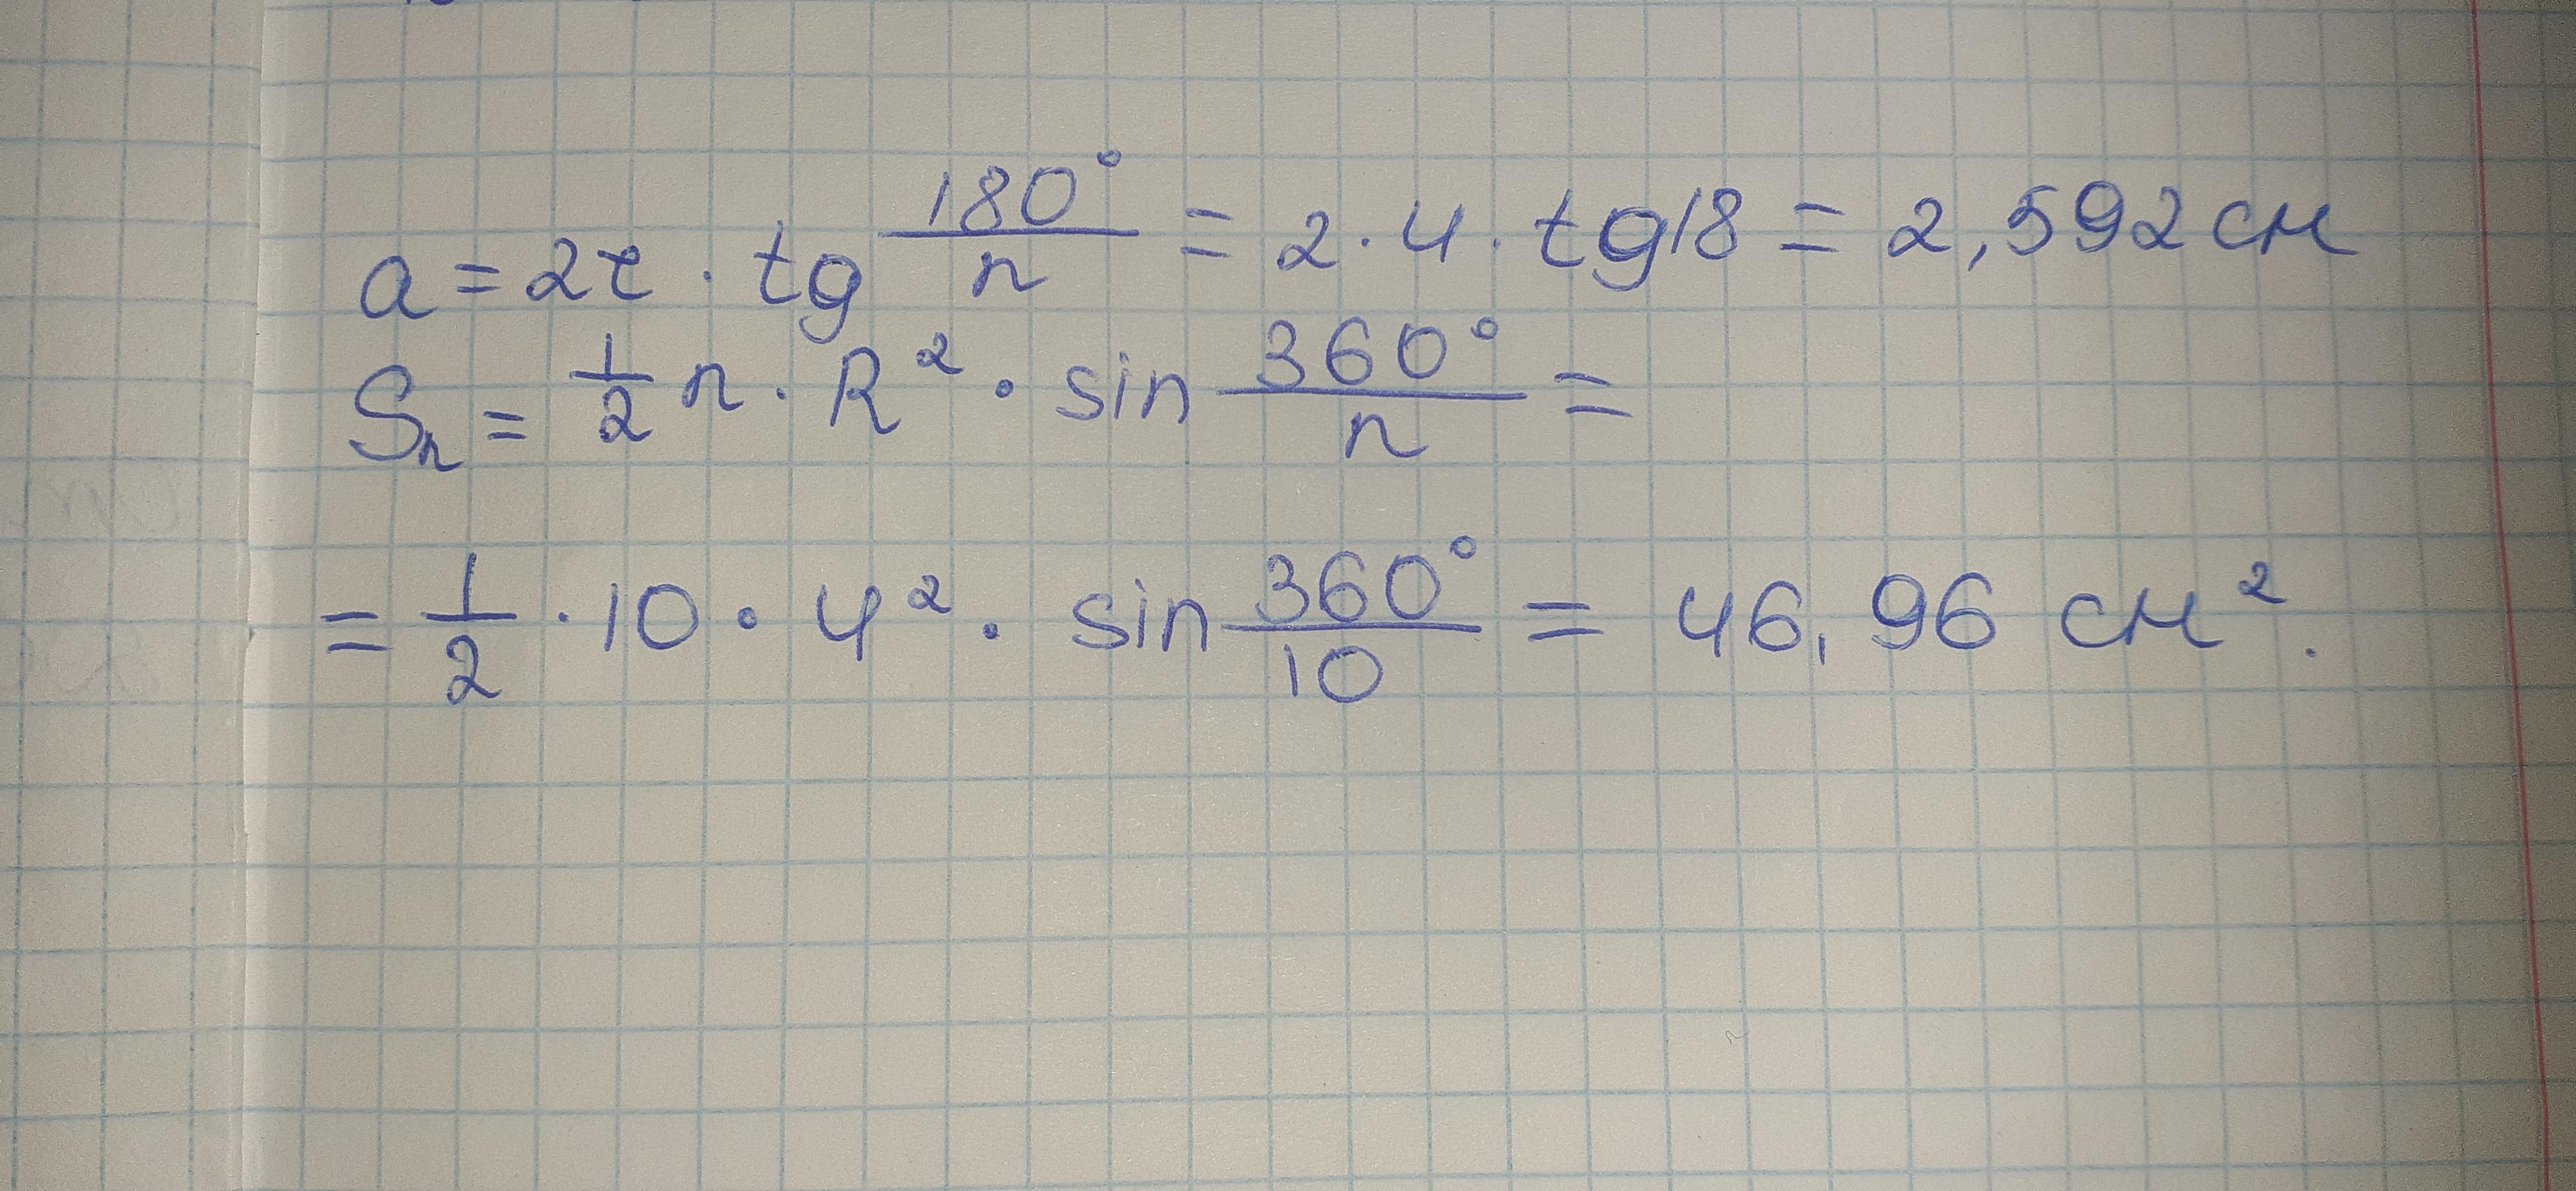 a = 2r · tg 180°/n = 2 · 4 · tg18 = 2,592 см
Sn = 1/2 n · R² · sin 360°/n =
= 1/2 · 10 · 4² · sin 360°/10 = 46,96 см².